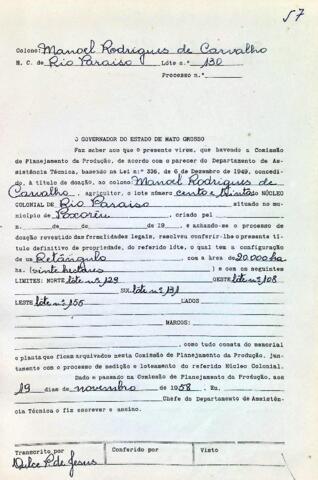 57
Colono: Manoel Rodrigues de Carvalho
N. C. de Rio Paraiso Lóte n.° 130
Processo n.°
O GOVERNADOR DO ESTADO DE MATO GROSSO
Faz saber aos que o presente virem, que havendo a Comissão
de Planejamento da Produção, de acordo com o parecer do Departamento de As-
sistência Técnica, baseado na Lei n.° 336, de 6 de Dezembro de 1949, concedi-
do, à título de doação, ao colono Manoel Rodrigues de
Carvalho, agricultor, o lote número cento e trinta do NÚCLEO
COLONIAL DE Rio Paraiso situado no mu-
nicípio de Poxoréu, criado pel
n. de de de 19 , e achando-se o processo de
doação revestido das formalidades legais, resolveu conferir-lhe o presente tí-
tulo definitivo de propriedade, do referido lóte, o qual tem a configuração
de um Retângulo com a área de 20.000 ha.
ha. (vinte hectares) e com os seguintes
LIMITES: NORTE lóte n.° 129 OESTE lóte n.° 108
SUL lóte n.° 131
LESTE lóte n.° 155 LADOS
MARCOS:
, como tudo consta do memorial
e planta que ficam arquivados nesta Comissão de Planejamento da Produção, jun-
tamente com o processo de medição e loteamento do referido Núcleo Colonial.
Dado e passado na Comissão de Planejamento da Produção, aos
19 dias de novembro de 1958. Eu,
Chefe do Departamento de Assistên-
cia Técnica o fiz escrever e assino.
Transcrito por Conferido por Visto
Dulce P. de Jesus